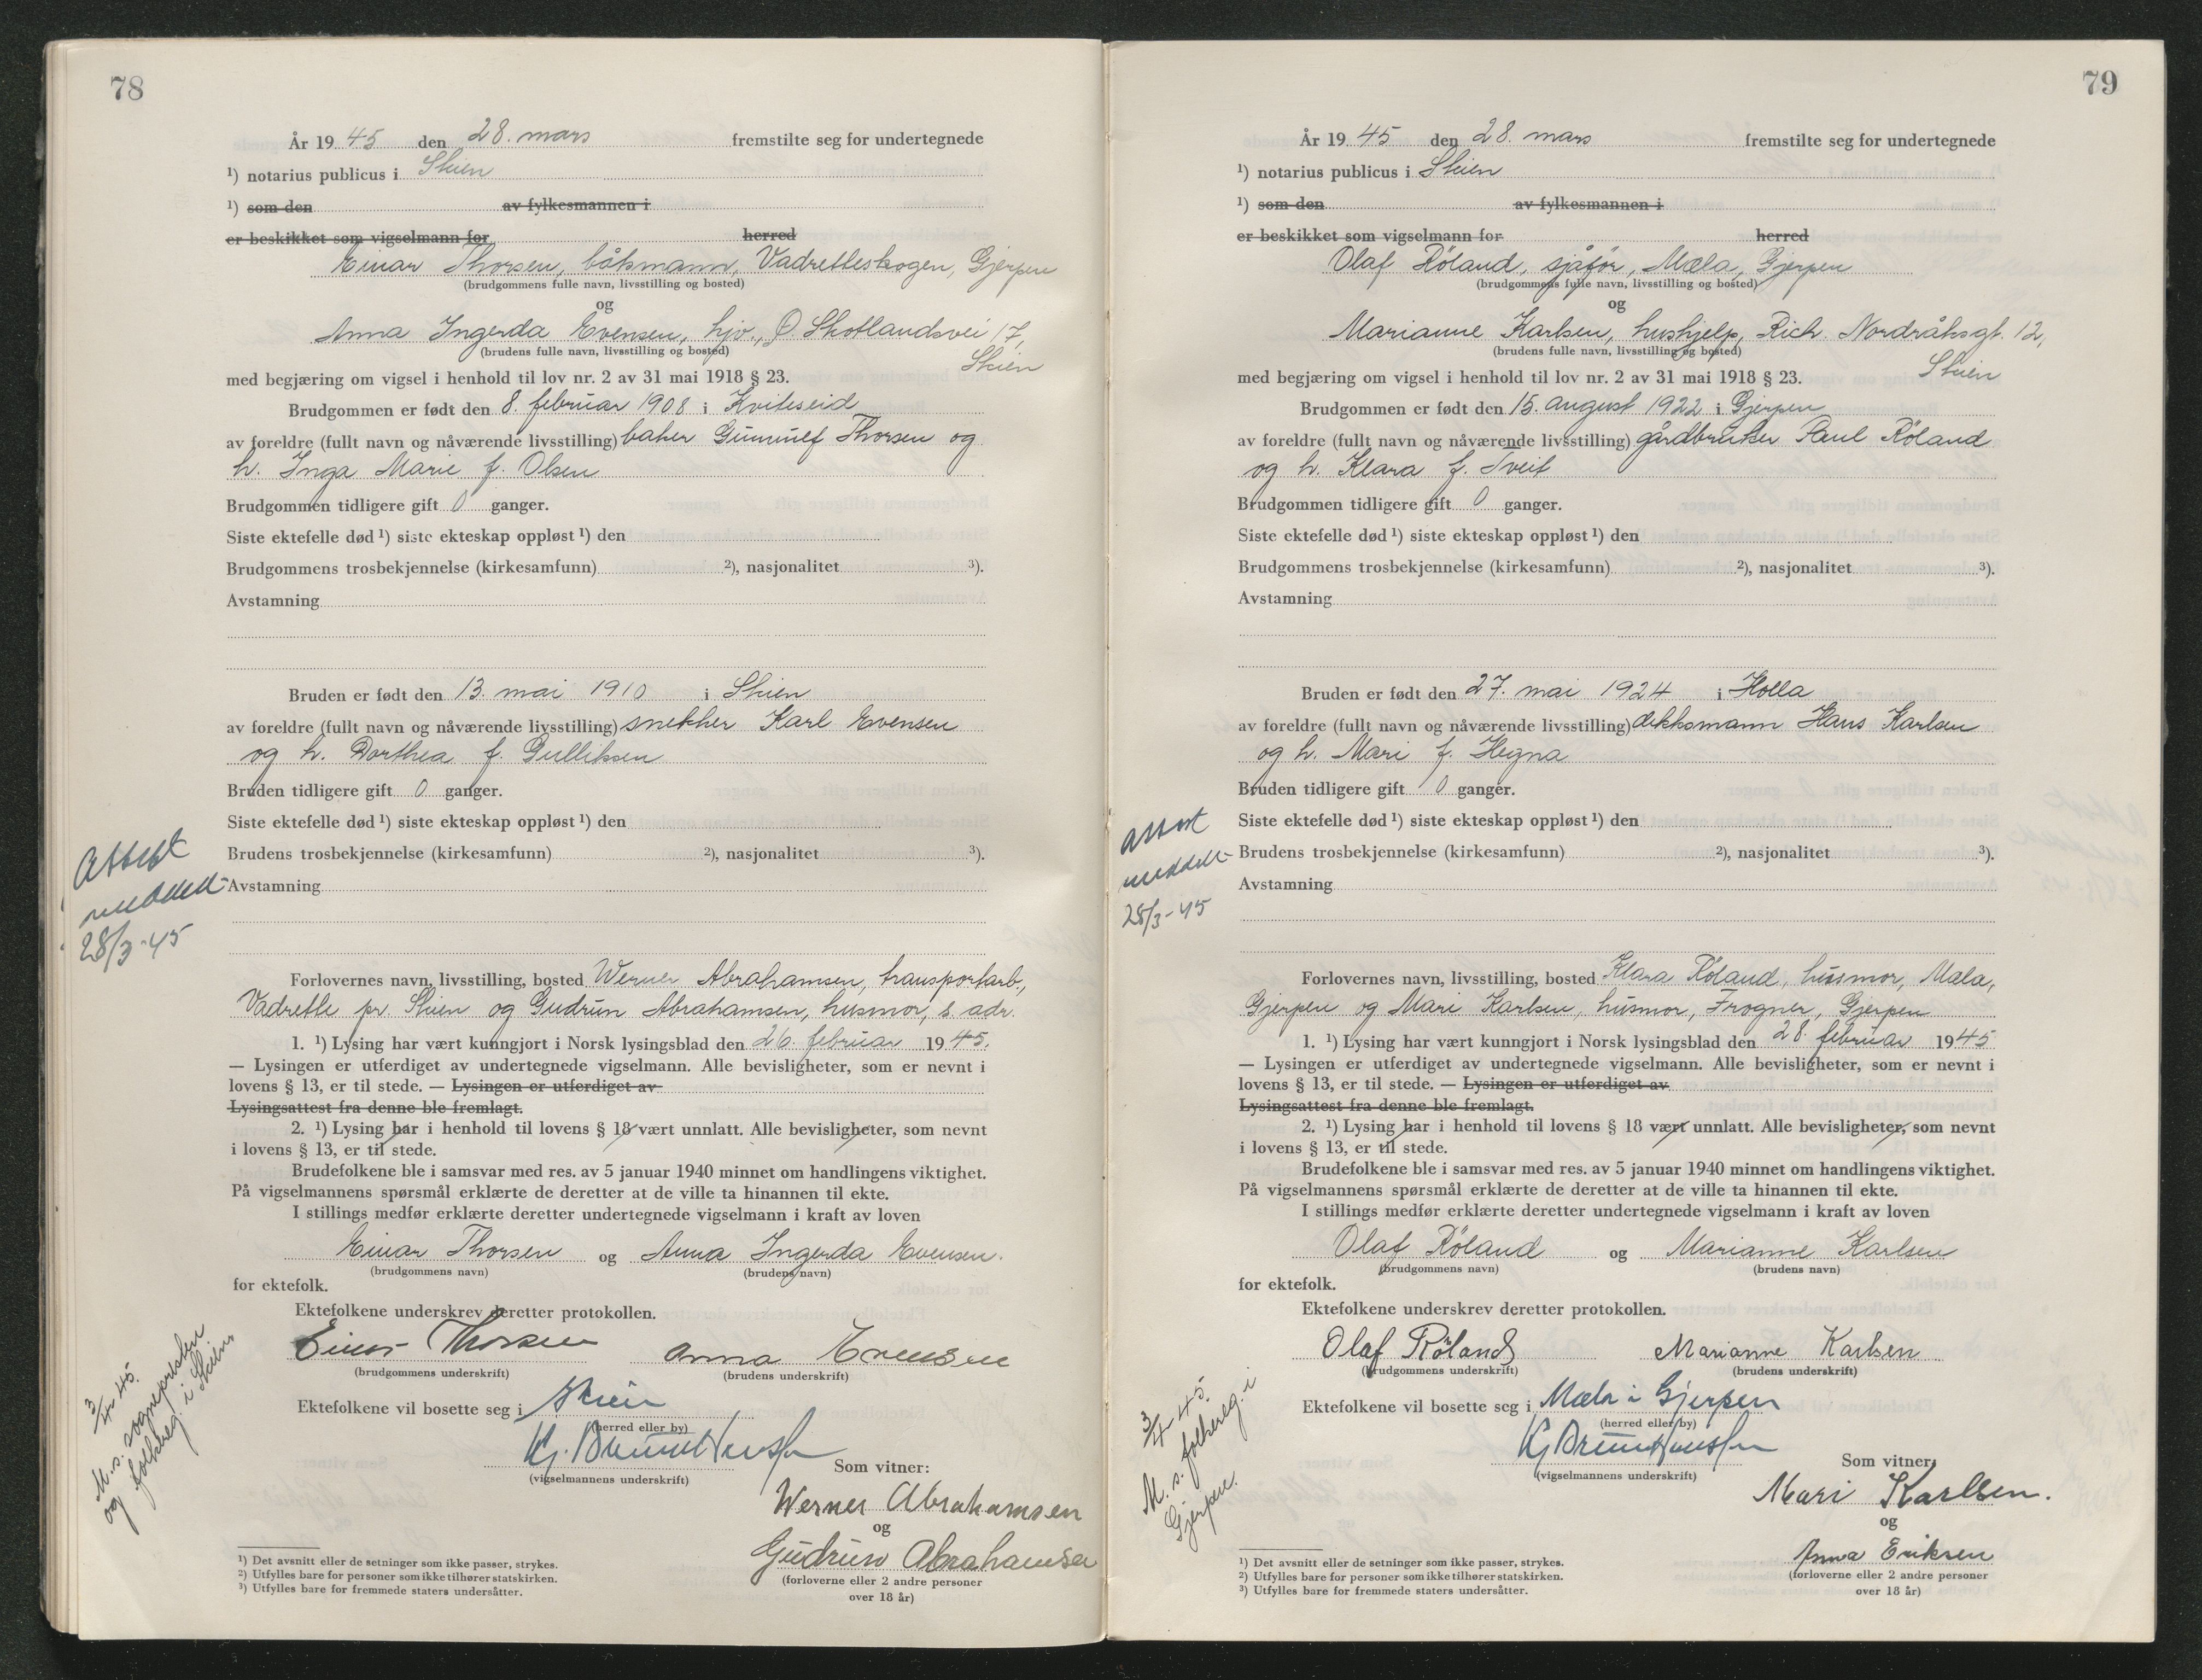 78
År 1945 den 28. mars fremstilte seg for undertegnede
¹) notarius publicus i Skien
¹) som den av fylkesmannen i
er beskikket som vigselmann for herred
Einar Thorsen, båtsmann, Vadretteskogen, Gjerpen
(brudgommens fulle navn, livsstilling og bosted)
og
Anna Ingerda Evensen, hjv., O. Skotlandsvei 17,
(brudens fulle navn, livsstilling og bosted)
Skien
med begjæring om vigsel i henhold til lov nr. 2 av 31 mai 1918 § 23.
Brudgommen er født den 8. februar 1908 i Kviteseid
av foreldre (fullt navn og nåværende livsstilling) baker Gunnulf Thorsen og
h. Inga Marie f. Olsen
Brudgommen tidligere gift 0 ganger.
Siste ektefelle død ¹) siste ekteskap oppløst ¹) den
Brudgommens trosbekjennelse (kirkesamfunn) ²), nasjonalitet ³).
Avstamning
Bruden er født den 13. mai 1910 i Skien
av foreldre (fullt navn og nåværende livsstilling) snekker Karl Evensen
og h. Dorthea f. Gulliksen
Bruden tidligere gift 0 ganger.
Siste ektefelle død ¹) siste ekteskap oppløst ¹) den
Brudens trosbekjennelse (kirkesamfunn) ²), nasjonalitet ³).
Avstamning
Attest
meddelt
28/3-45
Forlovernes navn, livsstilling, bosted Werner Abrahamsen, transportarb.,
Vadrette pr. Skien og Gudrun Abrahamsen, husmor, s. adr.
1. ¹) Lysing har vært kunngjort i Norsk lysingsblad den 26. februar 1945.
— Lysingen er utferdiget av undertegnede vigselmann. Alle bevisligheter, som er nevnt i
lovens § 13, er til stede. — Lysingen er utferdiget av
Lysingsattest fra denne ble fremlagt.
2. ¹) Lysing har i henhold til lovens § 18 vært unnlatt. Alle bevisligheter, som nevnt
i lovens § 13, er til stede.
Brudefolkene ble i samsvar med res. av 5 januar 1940 minnet om handlingens viktighet.
På vigselmannens spørsmål erklærte de deretter at de ville ta hinannen til ekte.
I stillings medfør erklærte deretter undertegnede vigselmann i kraft av loven
Einar Thorsen og Anna Ingerda Evensen.
(brudgommens navn) (brudens navn)
for ektefolk.
Ektefolkene underskrev deretter protokollen.
Einar Thorsen Anna Evensen
(brudgommens underskrift) (brudens underskrift)
Ektefolkene vil bosette seg i Skien
(herred eller by)
(vigselmannens underskrift)
Som vitner:
Werner Abrahamsen
og
Gudrun Abrahamsen
(forloverne eller 2 andre personer
over 18 år)
3/4-45.
M. s. sognepresten
og folkereg. i Skien
¹) Det avsnitt eller de setninger som ikke passer, strykes.
²) Utfylles bare for personer som ikke tilhører statskirken.
³) Utfylles bare for fremmede staters undersåtter.
79
År 1945 den 28. mars fremstilte seg for undertegnede
¹) notarius publicus i Skien
¹) som den av fylkesmannen i
er beskikket som vigselmann for herred
Olaf Röland, sjåför, Mæla, Gjerpen
(brudgommens fulle navn, livsstilling og bosted)
og
Marianne Karlsen, hushjelp, Rich. Nordråksgt. 12,
(brudens fulle navn, livsstilling og bosted)
Skien
med begjæring om vigsel i henhold til lov nr. 2 av 31 mai 1918 § 23.
Brudgommen er født den 15. august 1922 i Gjerpen
av foreldre (fullt navn og nåværende livsstilling) gårdbruker Paul Röland
og h. Klara f. Tveit
Brudgommen tidligere gift 0 ganger.
Siste ektefelle død ¹) siste ekteskap oppløst ¹) den
Brudgommens trosbekjennelse (kirkesamfunn) ²), nasjonalitet ³).
Avstamning
Bruden er født den 27. mai 1924 i Holla
av foreldre (fullt navn og nåværende livsstilling) dekksmann Hans Karlsen
og h. Mari f. Hegna
Bruden tidligere gift 0 ganger.
Siste ektefelle død ¹) siste ekteskap oppløst ¹) den
Brudens trosbekjennelse (kirkesamfunn) ²), nasjonalitet ³).
Avstamning
Attest
meddelt
28/3-45
Forlovernes navn, livsstilling, bosted Klara Röland, husmor, Mæla,
Gjerpen og Mari Karlsen, husmor, Frogner, Gjerpen
1. ¹) Lysing har vært kunngjort i Norsk lysingsblad den 28. februar 1945
— Lysingen er utferdiget av undertegnede vigselmann. Alle bevisligheter, som er nevnt i
lovens § 13, er til stede. — Lysingen er utferdiget av
Lysingsattest fra denne ble fremlagt.
2. ¹) Lysing har i henhold til lovens § 18 vært unnlatt. Alle bevisligheter, som nevnt
i lovens § 13, er til stede.
Brudefolkene ble i samsvar med res. av 5 januar 1940 minnet om handlingens viktighet.
På vigselmannens spørsmål erklærte de deretter at de ville ta hinannen til ekte.
I stillings medfør erklærte deretter undertegnede vigselmann i kraft av loven
Olaf Röland og Marianne Karlsen
(brudgommens navn) (brudens navn)
for ektefolk.
Ektefolkene underskrev deretter protokollen.
Olaf Röland Marianne Karlsen
(brudgommens underskrift) (brudens underskrift)
Ektefolkene vil bosette seg i Mæla i Gjerpen
(herred eller by)
(vigselmannens underskrift)
Som vitner:
Mari Karlsen.
og
Anna Eriksen
(forloverne eller 2 andre personer
over 18 år)
3/4-45.
M. s. folkereg. i
Gjerpen.
¹) Det avsnitt eller de setninger som ikke passer, strykes.
²) Utfylles bare for personer som ikke tilhører statskirken.
³) Utfylles bare for fremmede staters undersåtter.